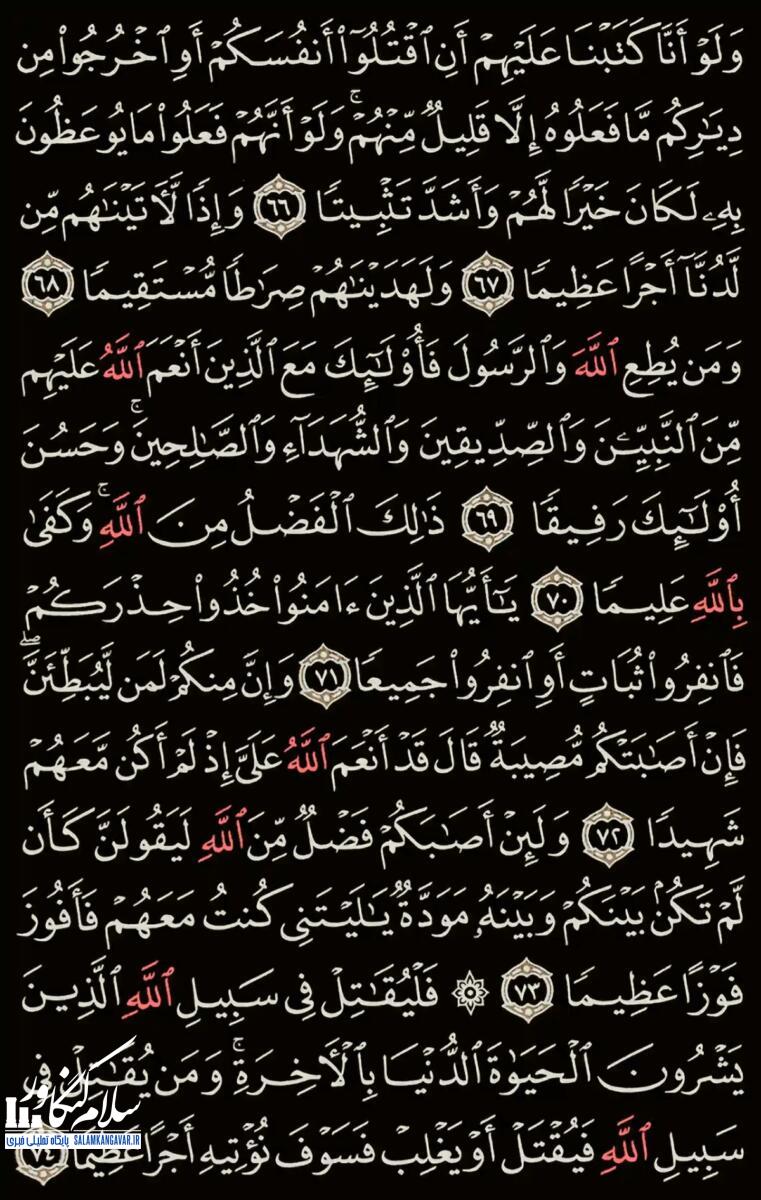 وَلَوْ أَنَّا كَتَبْنَا عَلَيْهِمْ أَنِ ٱقْتُلُوٓا۟ أَنفُسَكُمْ أَوِ ٱخْرُجُوا۟ مِن
دِيَٰرِكُم مَّا فَعَلُوهُ إِلَّا قَلِيلٌ مِّنْهُمْ ۖ وَلَوْ أَنَّهُمْ فَعَلُوا۟ مَا يُوعَظُونَ
بِهِۦ لَكَانَ خَيْرًا لَّهُمْ وَأَشَدَّ تَثْبِيتًا ٦٦ وَإِذًا لَّأٓتَيْنَٰهُم مِّن
لَّدُنَّآ أَجْرًا عَظِيمًا ٦٧ وَلَهَدَيْنَٰهُمْ صِرَٰطًا مُّسْتَقِيمًا ٦٨
وَمَن يُطِعِ ٱللَّهَ وَٱلرَّسُولَ فَأُو۟لَٰٓئِكَ مَعَ ٱلَّذِينَ أَنْعَمَ ٱللَّهُ عَلَيْهِم
مِّنَ ٱلنَّبِيِّـۧنَ وَٱلصِّدِّيقِينَ وَٱلشُّهَدَآءِ وَٱلصَّٰلِحِينَ ۚ وَحَسُنَ
أُو۟لَٰٓئِكَ رَفِيقًا ٦٩ ذَٰلِكَ ٱلْفَضْلُ مِنَ ٱللَّهِ ۚ وَكَفَىٰ
بِٱللَّهِ عَلِيمًا ٧٠ يَٰٓأَيُّهَا ٱلَّذِينَ ءَامَنُوا۟ خُذُوا۟ حِذْرَكُمْ
فَٱنفِرُوا۟ ثُبَاتٍ أَوِ ٱنفِرُوا۟ جَمِيعًا ٧١ وَإِنَّ مِنكُمْ لَمَن لَّيُبَطِّئَنَّ ۖ
فَإِنْ أَصَٰبَتْكُم مُّصِيبَةٌ قَالَ قَدْ أَنْعَمَ ٱللَّهُ عَلَىَّ إِذْ لَمْ أَكُن مَّعَهُمْ
شَهِيدًا ٧٢ وَلَئِنْ أَصَٰبَكُمْ فَضْلٌ مِّنَ ٱللَّهِ لَيَقُولَنَّ كَأَن
لَّمْ تَكُنۢ بَيْنَكُمْ وَبَيْنَهُۥ مَوَدَّةٌ يَٰلَيْتَنِى كُنتُ مَعَهُمْ فَأَفُوزَ
فَوْزًا عَظِيمًا ٧٣ ۞ فَلْيُقَٰتِلْ فِى سَبِيلِ ٱللَّهِ ٱلَّذِينَ
يَشْرُونَ ٱلْحَيَوٰةَ ٱلدُّنْيَا بِٱلْءَاخِرَةِ ۚ وَمَن يُقَٰتِلْ فِى
سَبِيلِ ٱللَّهِ فَيُقْتَلْ أَوْ يَغْلِبْ فَسَوْفَ نُؤْتِيهِ أَجْرًا عَظِيمًا ٧٤
سلام کنگاور
پایگاه تحلیلی خبری SALAMKANGAVAR.IR